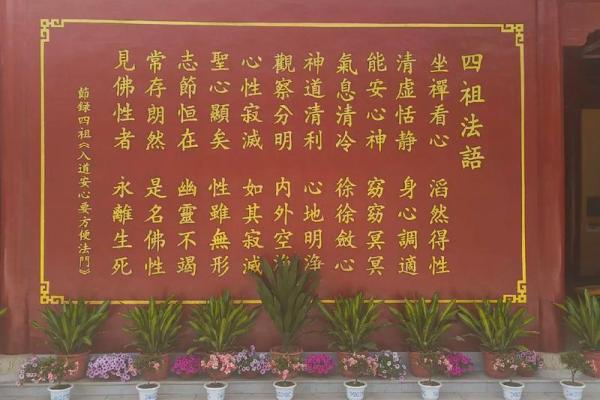 四祖法語
坐禪看心 滔然得性
清虛恬靜 身心調適
能安心神 窈窈冥冥
氣息清冷 徐徐斂心
神道清利 心地明淨
觀察分明 內外空
心性寂滅 如其寂滅
聖心顯矣 性雖無形
志節恒在 幽靈不竭
常存朗然 是名佛性
見佛性者 永離生死
節録四祖《入道安心要方便法門》